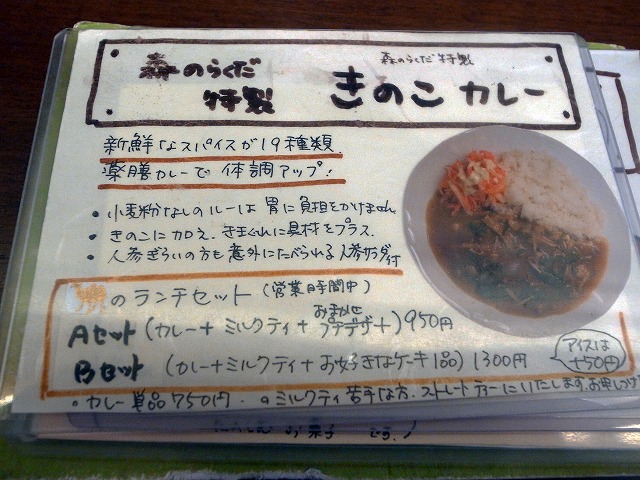 森のらくだ
特製
森のらくだ特製
きのこカレー
新鮮なスパイスが19種類
薬膳カレーで 体調アップ!
・小麦粉なしのルーは 胃に負担をかけません
・きのこに加え、きまぐれに具材をプラス。
・人参ぎらいの方も意外にたべられる人参サラダ付
のランチセット (営業時間中)
Aセット (カレー+ミルクティ+おまかせプチデザート) 950円
Bセット (カレー+ミルクティ+お好きなケーキ1品) 1300円
アイスは
+50円
・カレー単品750円. ・ミルクティ苦手な方、ストレートティーにいたします。お申しつけ
お菓子 です。)